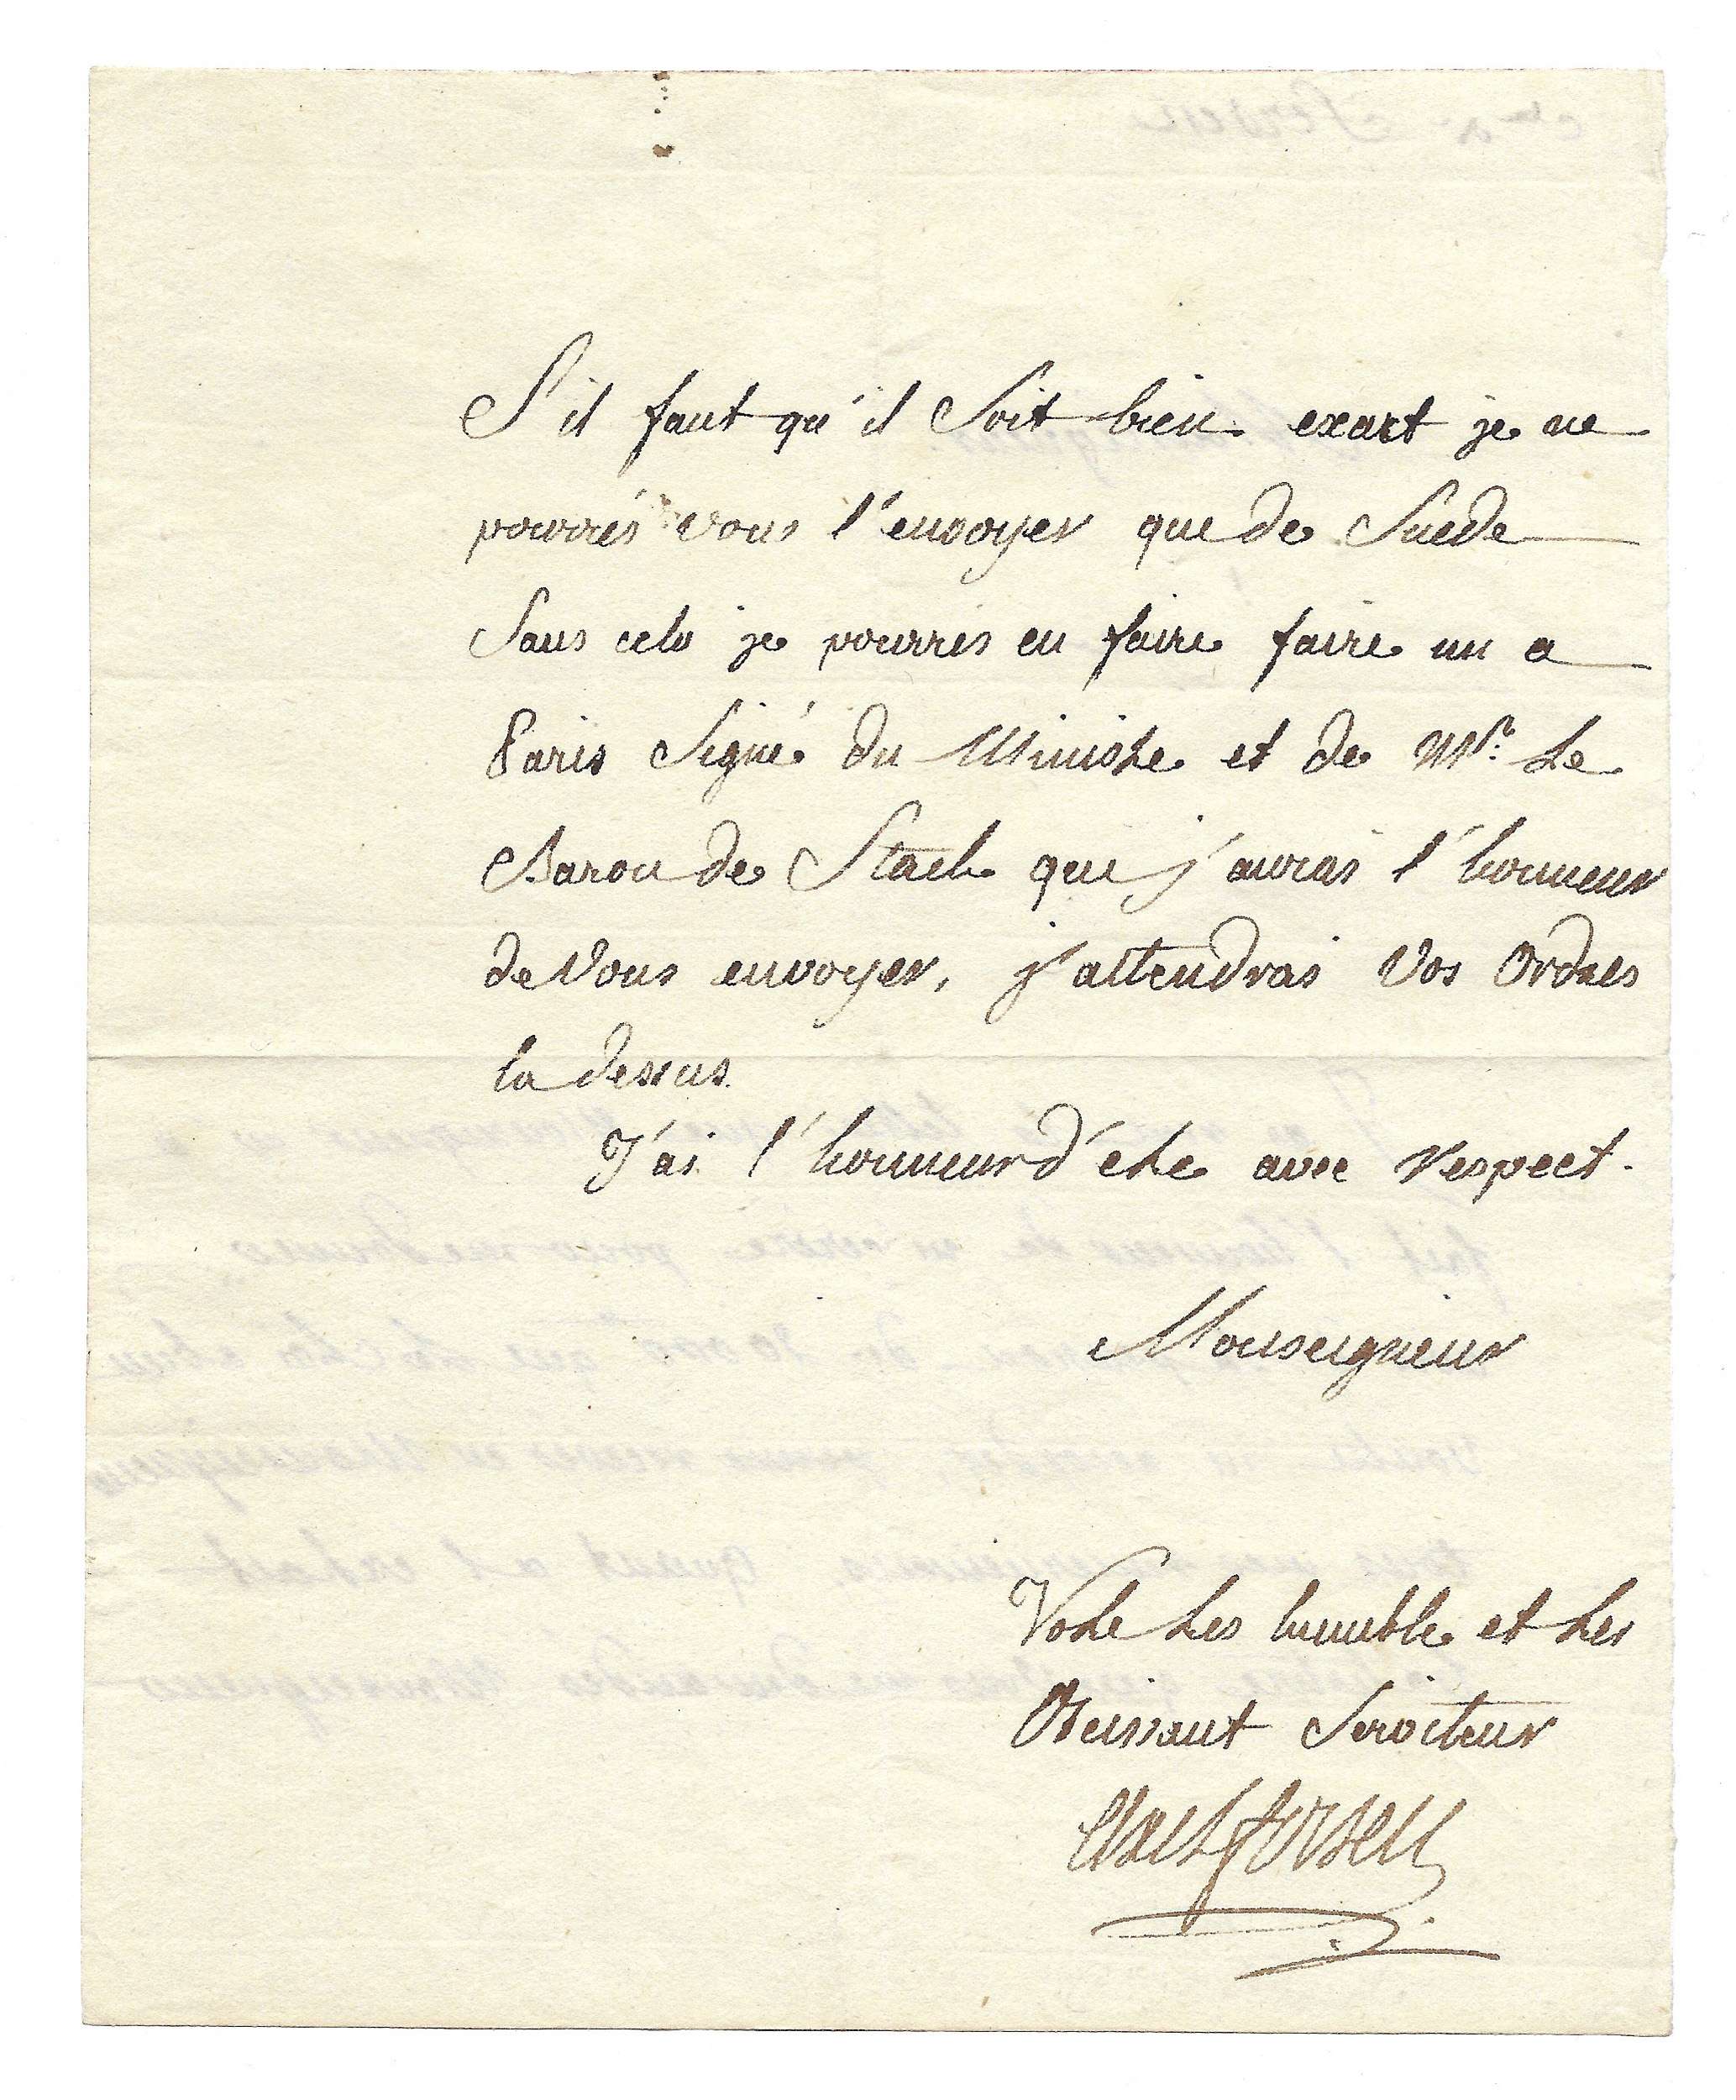 S'il faut qu'il soit bien exact je ne
pourrés vous l'envoyer que de Suede
sans cela je pourres en faire faire un a
Paris signé du Ministre et de Mr. Le
Baron de Stael que j'aurai l'honneur
de vous envoyer, j'attendrai vos ordres
la dessus.
J'ai l'honneur d'etre avec respect.
Monseigneur
Votre tres humble et tres
Obeissant Serviteur
Axel fersen